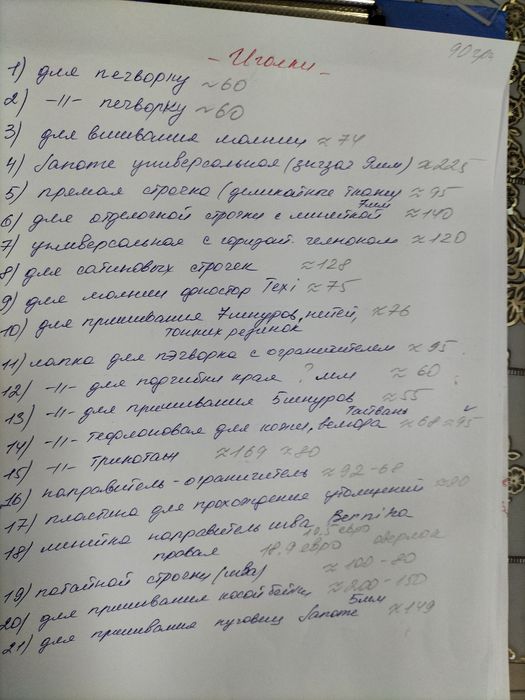 - Иголки -
90гр
1) для печворку ≈60
2) -"- печворку ≈60
3) для вшивания молнии ≈74
4) Janome универсальная (зигзаг 9мм) ≈225
5) прямая строчка (деликатные ткани ≈95
6) для отделочной строчки с линейкой 7мм ≈140
7) универсальная с горизонт. челноком ≈120
8) для сатиновых строчек ≈128
9) для молнии Texi ≈75
10) для пришивания 7шнуров, нитей, ≈76
тонких резинок
11) лапка для пэчворка с ограничителем ≈95
12) -"- для подгибки края ? мм ≈60
13) -"- для пришивания 5шнуров ≈55
14) -"- Тефлоновая для кожи, велюра Тайвань ≈68 ≈95
15) -"- Трикотаж ≈169 ≈80
16) направитель-ограничитель ≈92-68
17) пластина для прохождение утолщений ≈90
18) линейка направитель шва Bernina
правая 18.9 евро 10.5 евро оверлок
19) потайной строчки (шва) ≈100-80
20) для пришивания косой бейки ≈200-150
21) для пришивания пуговиц Janome 5мм ≈149